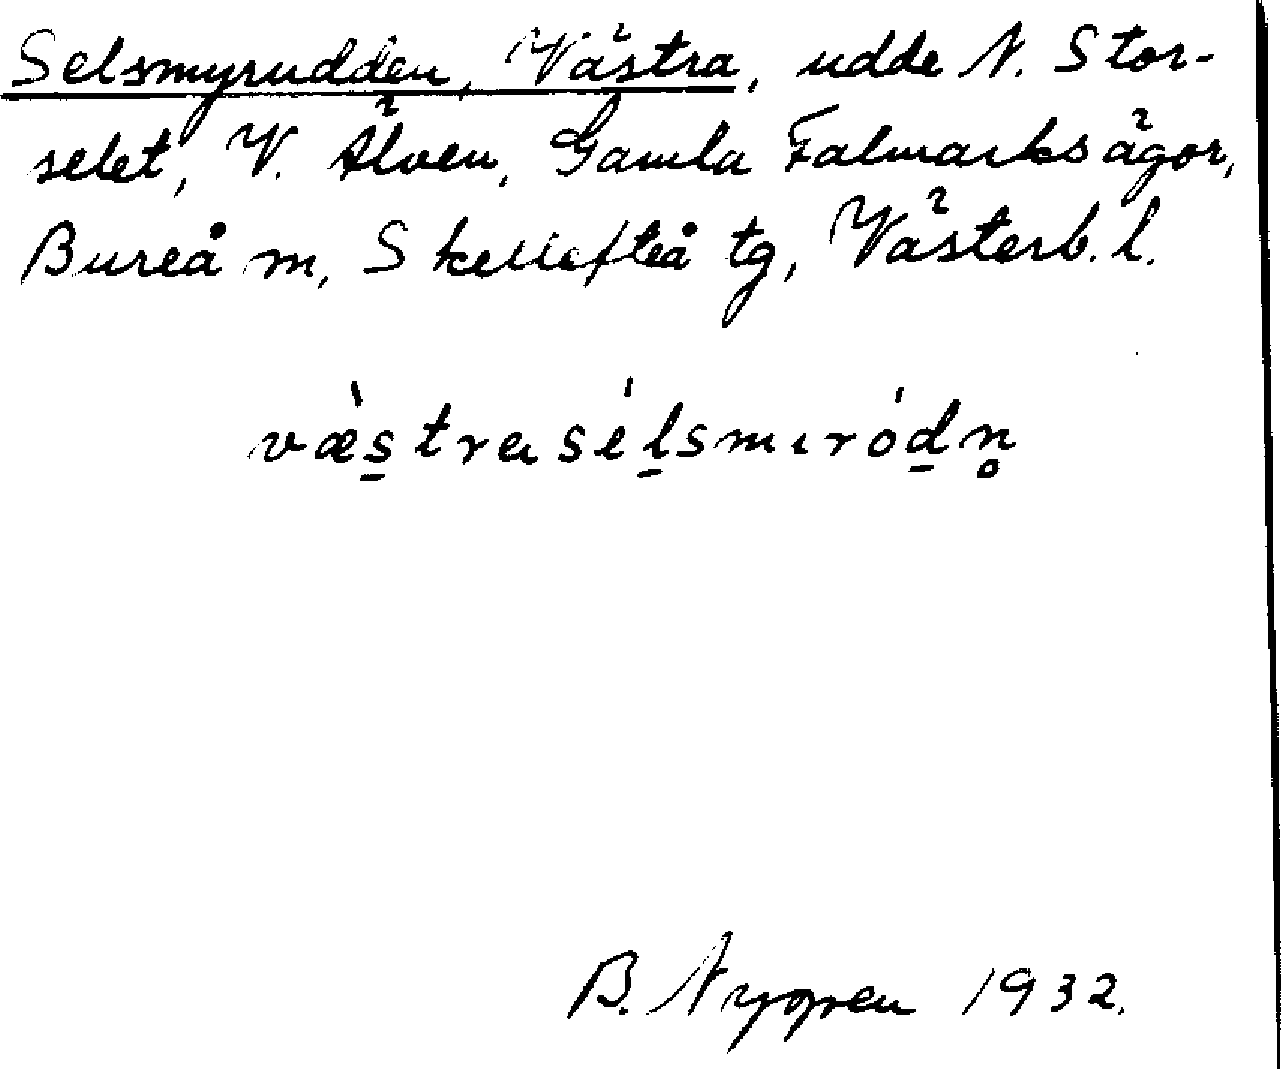 Selsmyrudden, Västra, udde N. Stor-
selet, V. Älven, Gamla Falmarksägor,
Bureå m, Skellefteå tg, Västerb. l.
væ̀s̲trasél̲smɩród̲n̥
B. Nygren 1932.